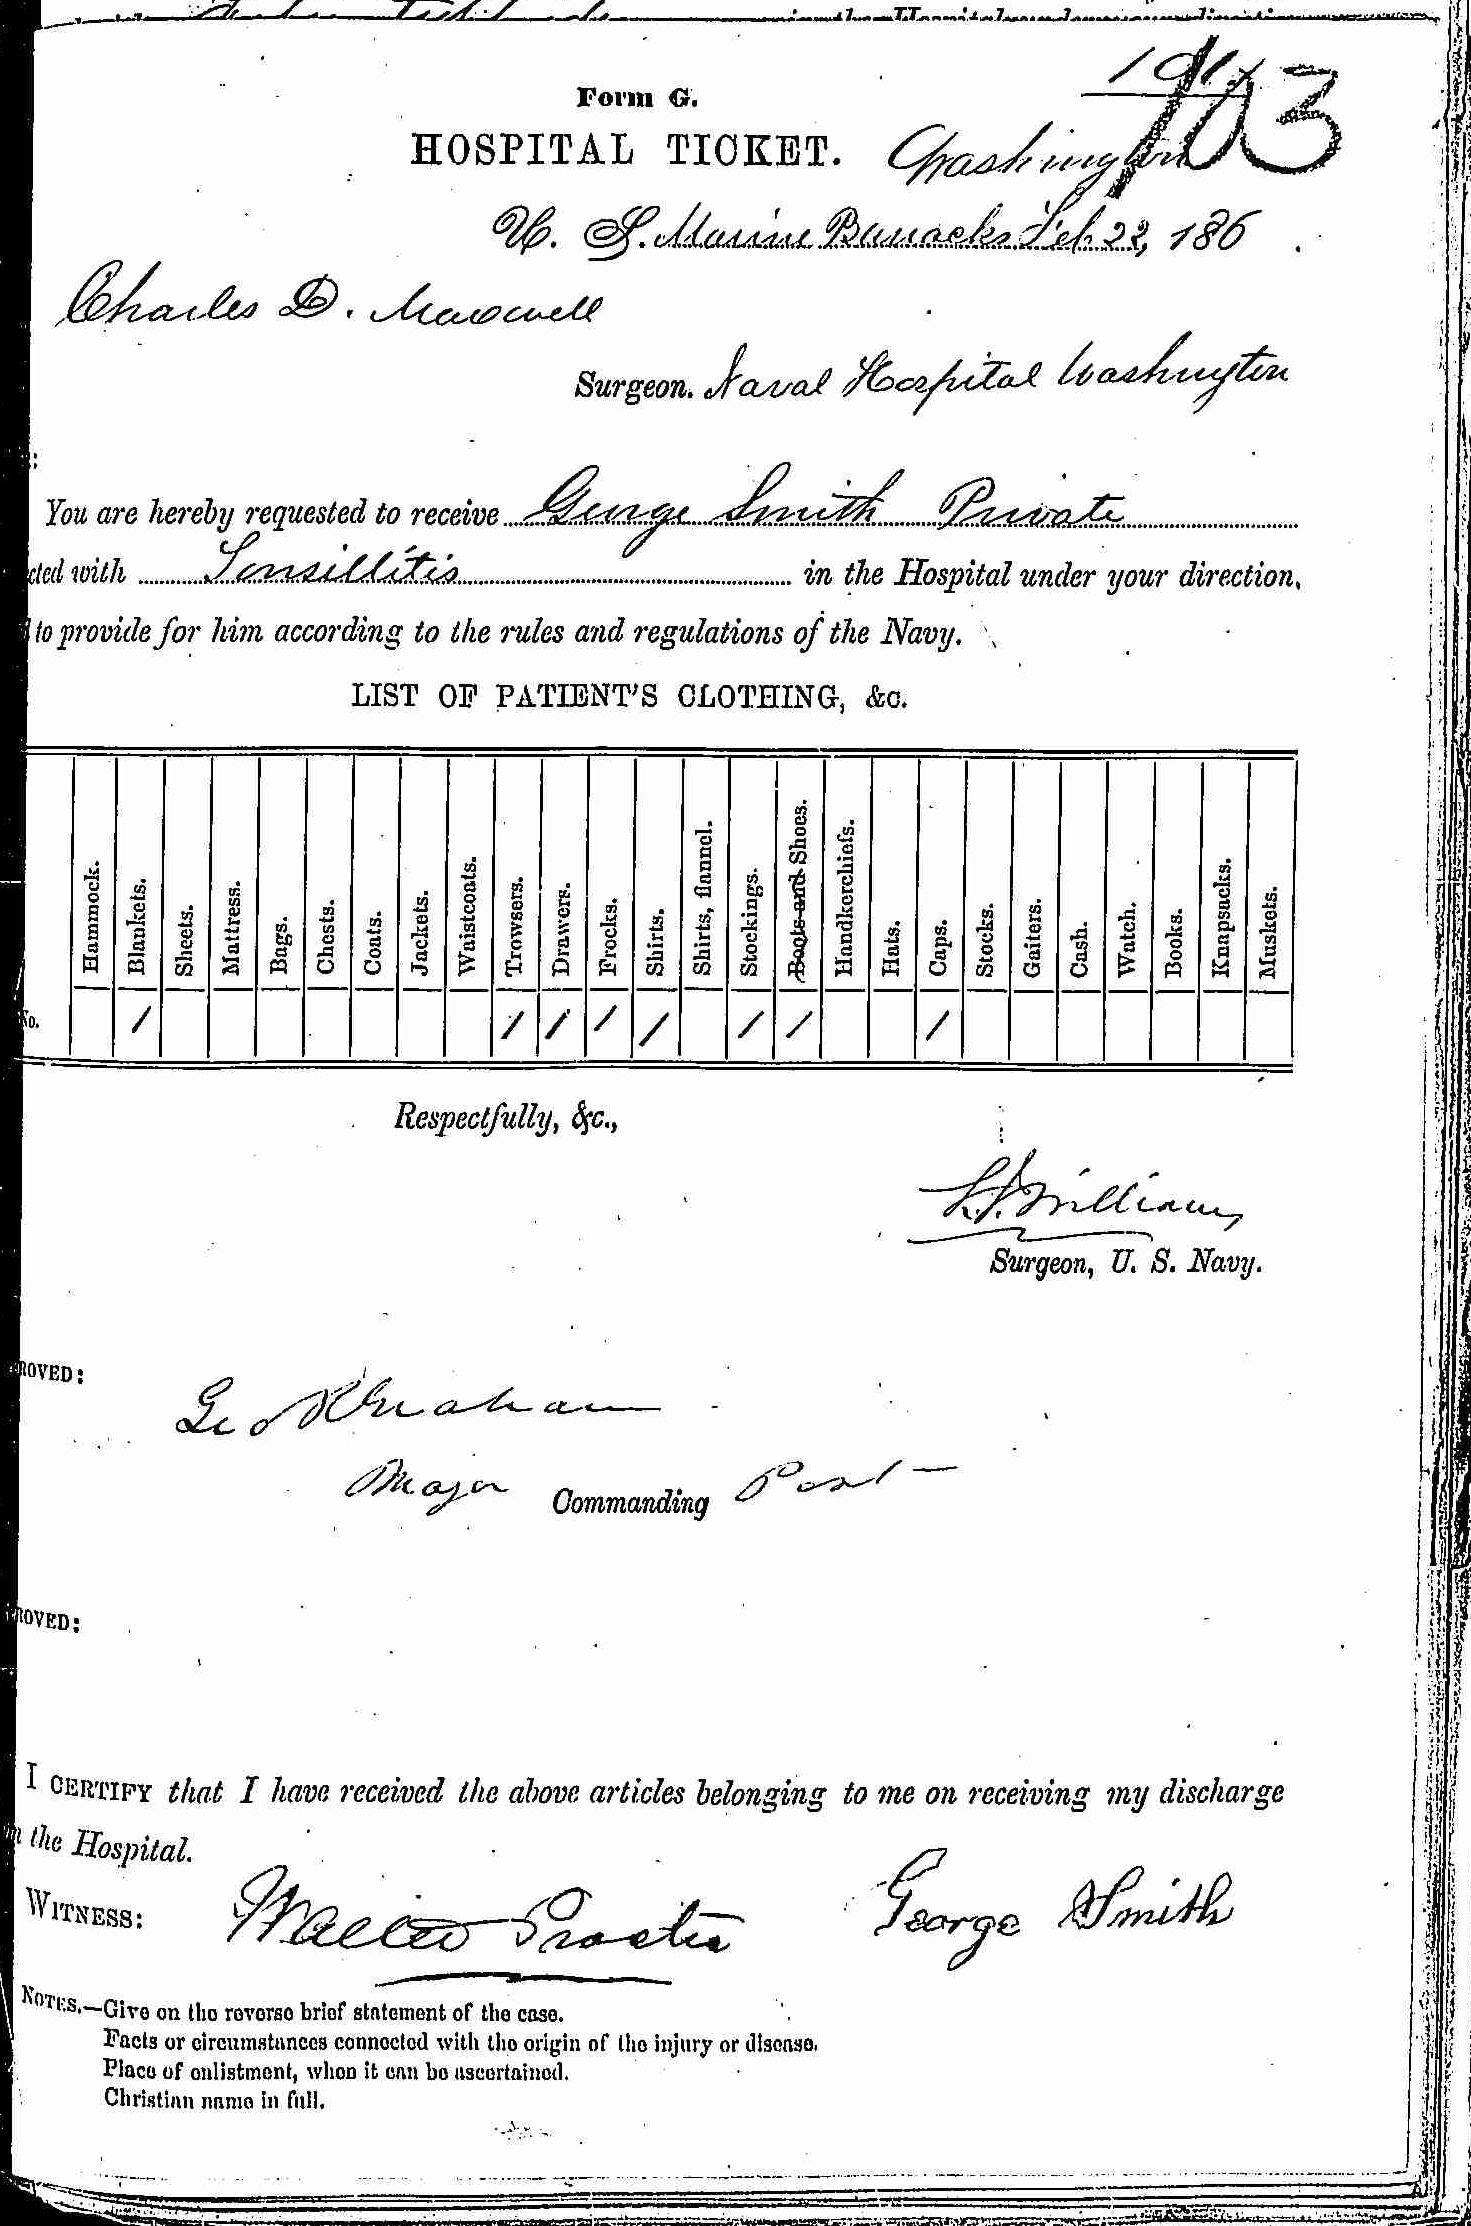 in the Hospital under your direction
Form G.
103
HOSPITAL TICKET. Washington
U. S. Marine Barracks Feb 22, 186 .
Charles D. Maxwell
Surgeon. Naval Hospital Washington
:
You are hereby requested to receive George Smith Private
cted with Tonsillitis in the Hospital under your direction,
to provide for him according to the rules and regulations of the Navy.
LIST OF PATIENT'S CLOTHING, &c.
Hammock. Blankets. Sheets. Mattress. Bags. Chests. Coats. Jackets. Waistcoats. Trowsers. Drawers. Frocks. Shirts. Shirts, flannel. Stockings. Boots and Shoes. Handkerchiefs. Hats. Caps. Stocks. Gaiters. Cash. Watch. Books. Knapsacks. Muskets.
No. / / / / / / / /
Respectfully, &c.,
Williams
Surgeon, U. S. Navy.
ROVED:
Geo R Graham
Major Commanding Post
ROVED:
I CERTIFY that I have received the above articles belonging to me on receiving my discharge
the Hospital.
WITNESS: Walter Procter George Smith
NOTES.—Give on the reverse brief statement of the case.
Facts or circumstances connected with the origin of the injury or disease.
Place of enlistment, when it can be ascertained.
Christian name in full.